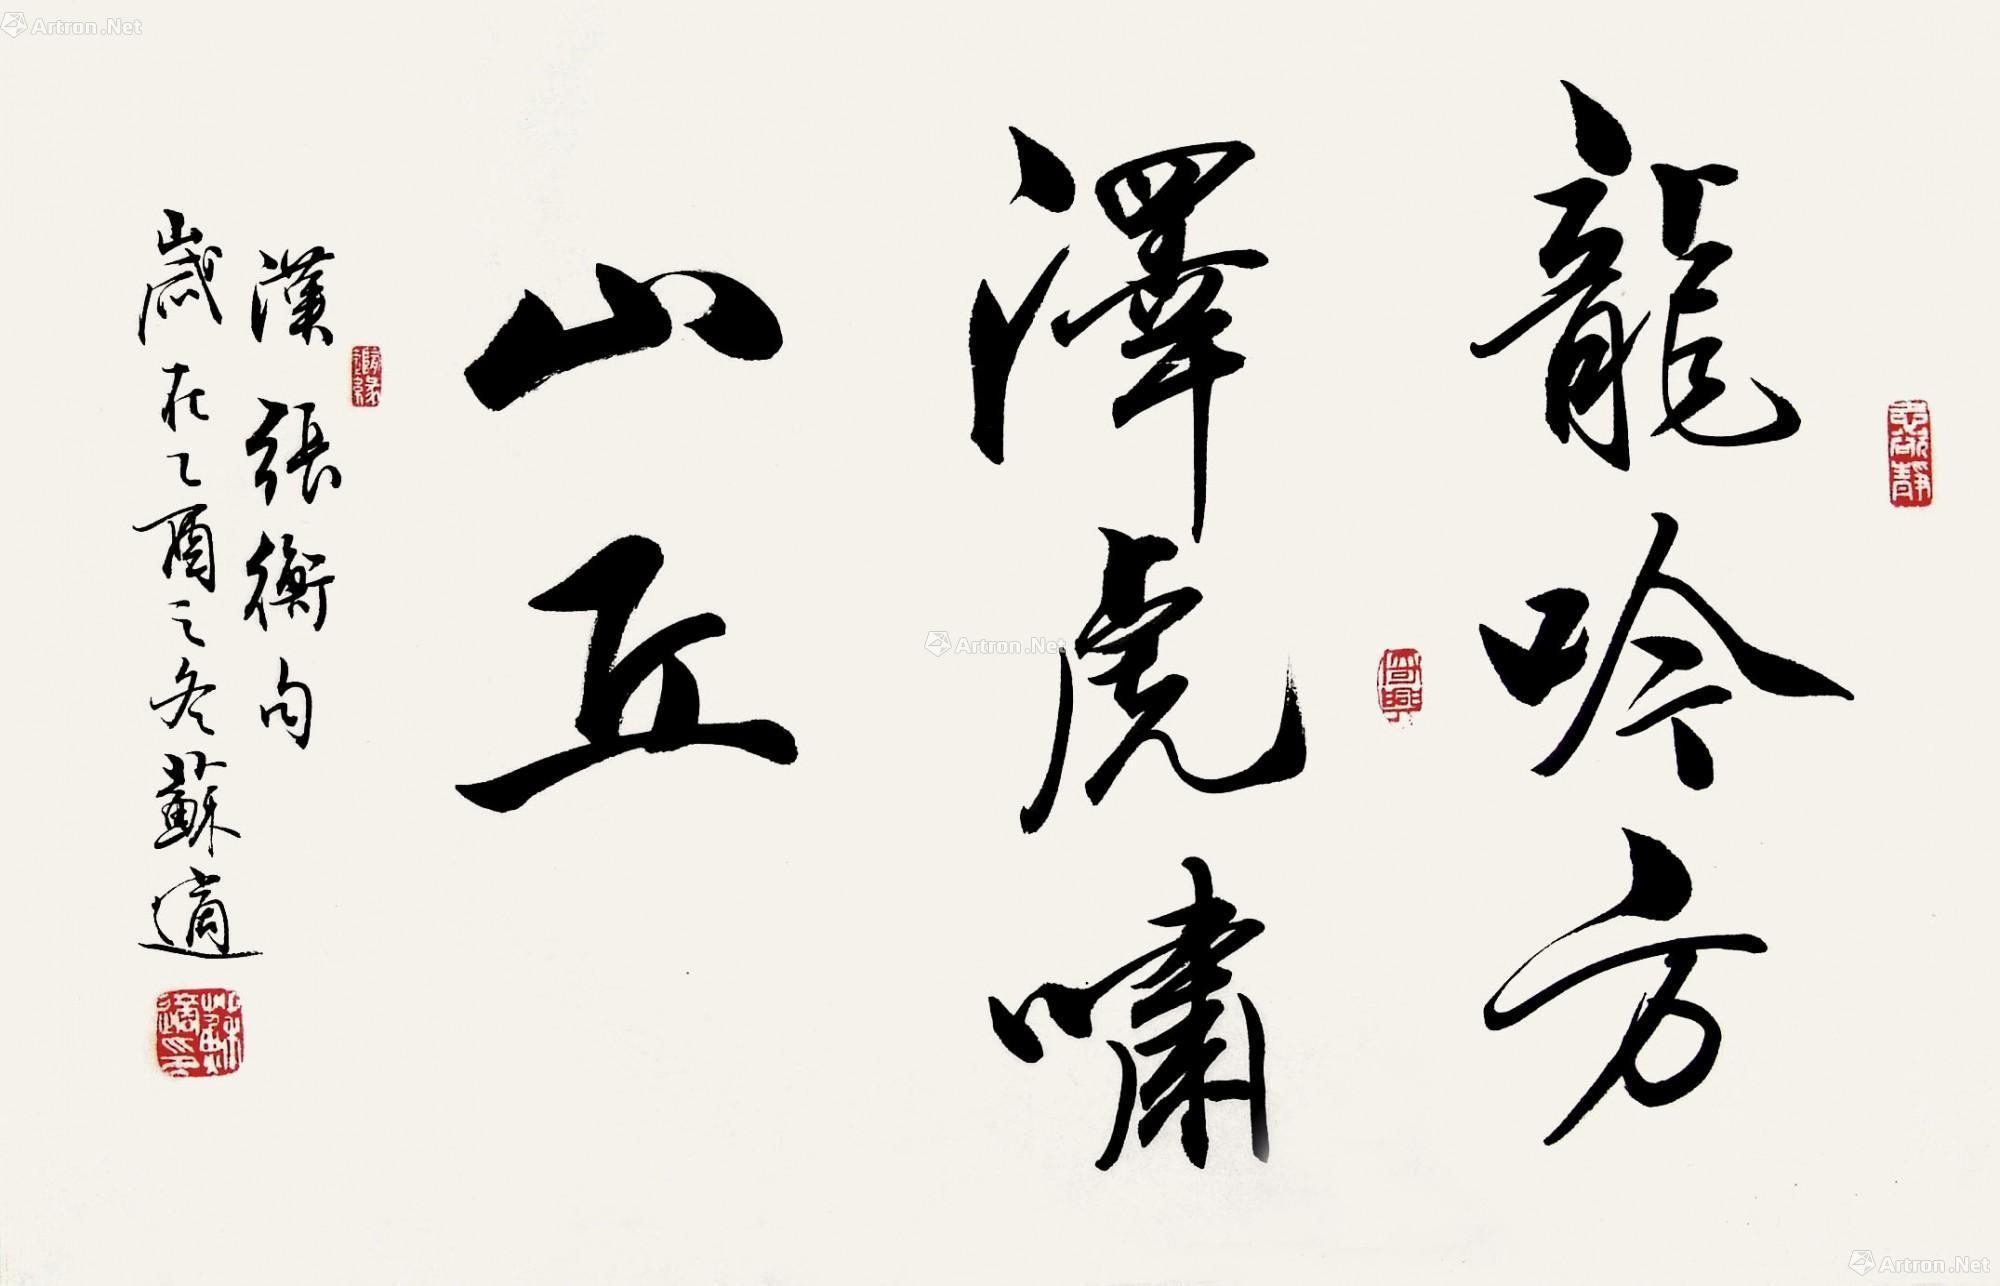 龍吟方
澤虎嘯
山丘
漢張衡句
歲在乙酉之冬蘇適
隨緣
蘇適印
Artron.Net
Artron.Net
Artron.Net